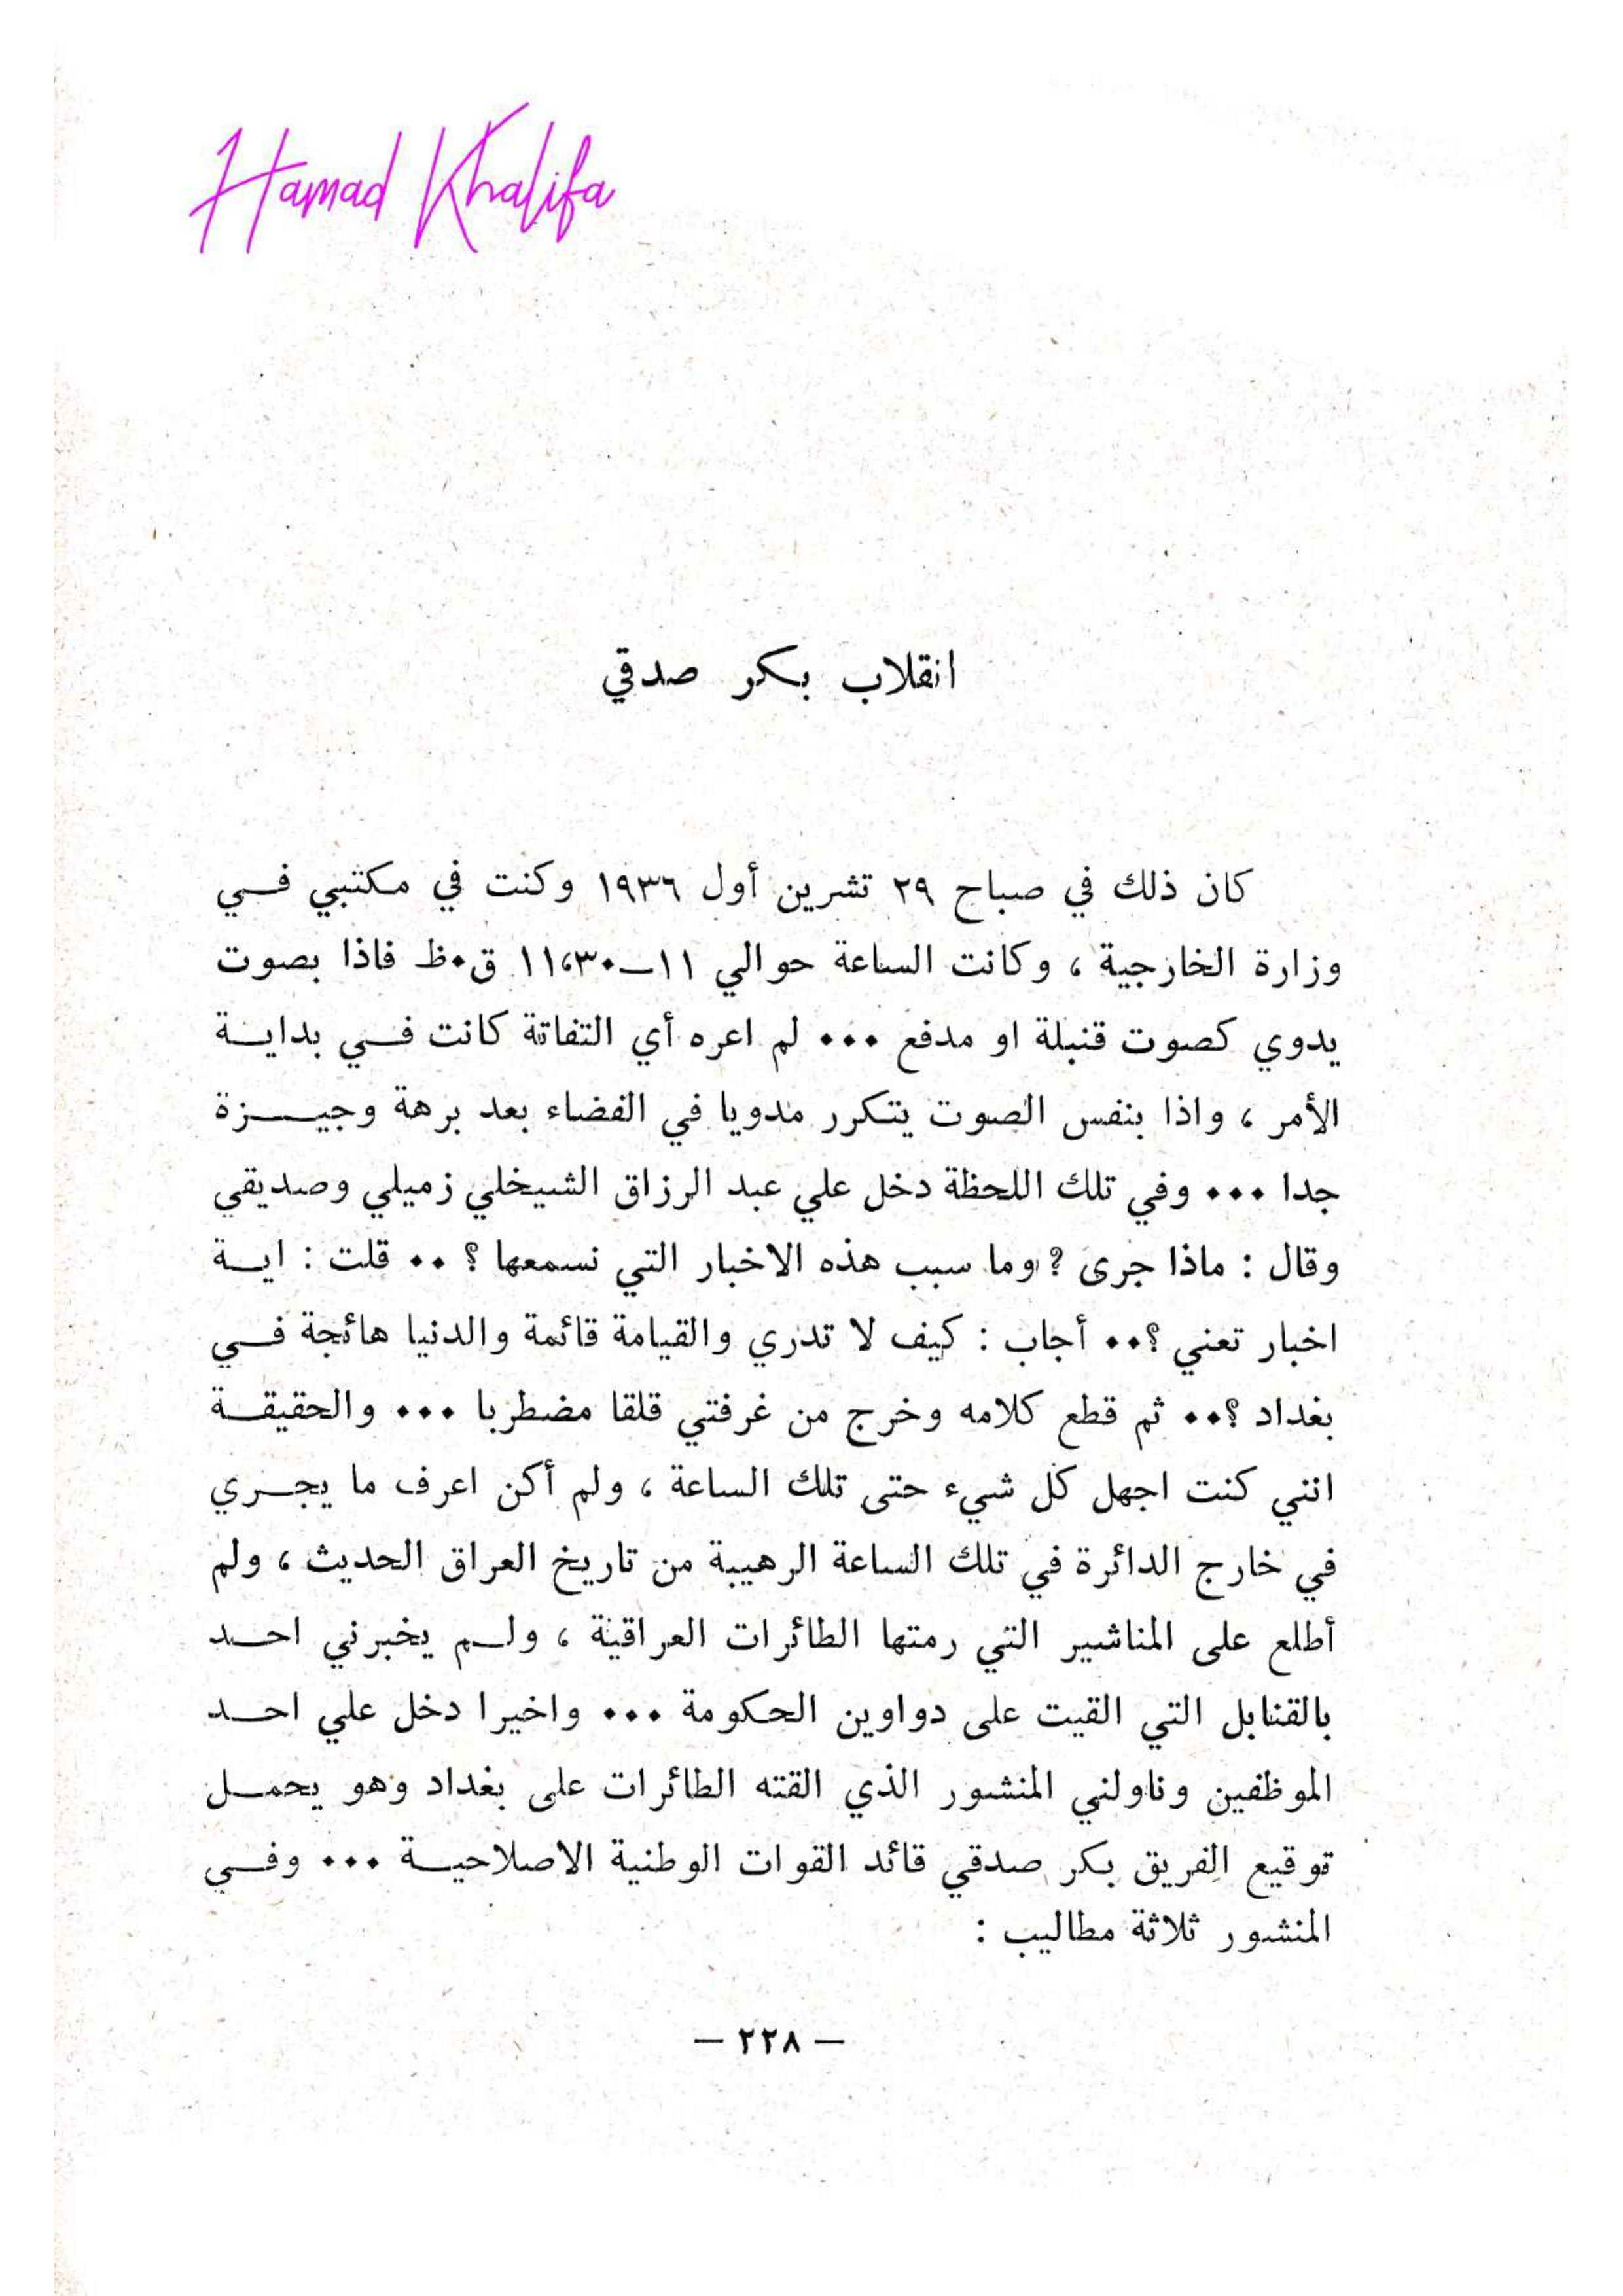 Hamad Khalifa
انقلاب بكر صدقي
كان ذلك في صباح ٢٩ تشرين أول ١٩٣٦ وكنت في مكتبي فــي
وزارة الخارجية ، وكانت الساعة حوالي ١١ــ١١،٣٠ ق٠ظ فاذا بصوت
يدوي كصوت قنبلة او مدفع ٠٠٠ لم اعره أي التفاتة كانت فــي بدايــة
الأمر ، واذا بنفس الصوت يتكرر مدويا في الفضاء بعد برهة وجيــزة
جدا ٠٠٠ وفي تلك اللحظة دخل علي عبد الرزاق الشيخلي زميلي وصديقي
وقال : ماذا جرى ؟ وما سبب هذه الاخبار التي نسمعها ؟ ٠٠ قلت : ايــة
اخبار تعني ؟٠٠ أجاب : كيف لا تدري والقيامة قائمة والدنيا هائجة فــي
بغداد ؟٠٠ ثم قطع كلامه وخرج من غرفتي قلقا مضطربا ٠٠٠ والحقيقــة
انني كنت اجهل كل شيء حتى تلك الساعة ، ولم أكن اعرف ما يجــري
في خارج الدائرة في تلك الساعة الرهيبة من تاريخ العراق الحديث ، ولم
أطلع على المناشير التي رمتها الطائرات العراقية ، ولــم يخبرني احــد
بالقنابل التي القيت على دواوين الحكومة ٠٠٠ واخيرا دخل علي احــد
الموظفين وناولني المنشور الذي القته الطائرات على بغداد وهو يحمــل
توقيع الفريق بكر صدقي قائد القوات الوطنية الاصلاحيــة ٠٠٠ وفــي
المنشور ثلاثة مطاليب :
— ٢٢٨ —